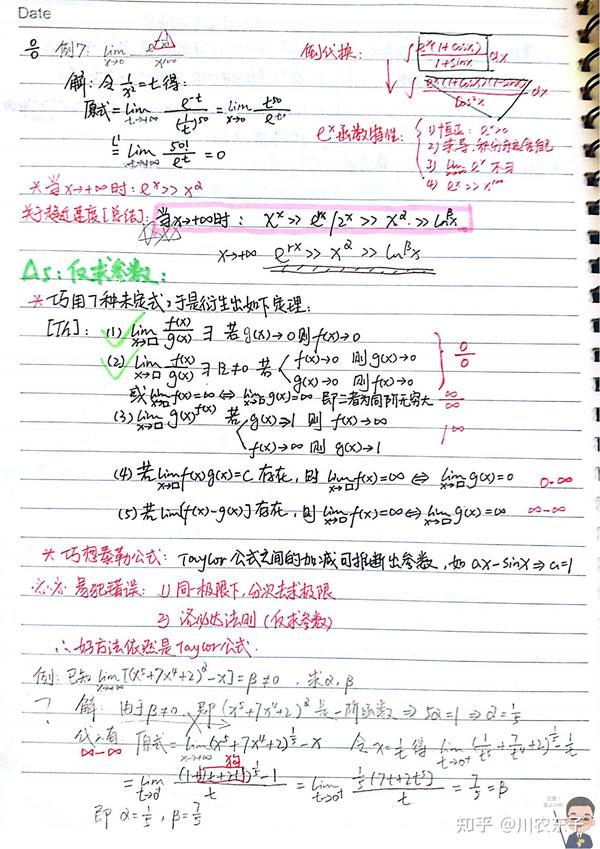 Date
0/0 例7: lim x→0 e^(-1/x²)/x^100
倒代换: ∫ e^x(1+cosx)/(1+sinx) dx
解: 令 1/x² = t 得:
↓ ∫ e^x(1+cosx)(1-sinx)/cos²x dx
原式 = lim t→+∞ e^-t/(1/t)^50 = lim x→0 t^50/e^t
L' = lim t→+∞ 50!/e^t = 0
e^x函数特性:
1) 恒正: e^x>0
2) 求导、积分
3) lim e^x 不∃
4) e^x >> x^100
*当x→+∞时: e^x >> x^α
[总结]: 当x→+∞时: x^x >> e^x/2^x >> x^α >> ln^β x
x→+∞ e^rx >> x^α >> ln^β x
Δ5: 仅求参数:
*巧用7种未定式, 于是衍生出如下定理:
[Th]: (1) lim x→□ f(x)/g(x) ∃ 若g(x)→0 则f(x)→0
(2) lim x→□ f(x)/g(x) ∃ 且≠0 若 f(x)→0 则g(x)→0
g(x)→0 则f(x)→0
0/0
或 lim x→□ f(x)=∞ ⇔ lim x→□ g(x)=∞ 即二者为同阶无穷大 ∞/∞
(3) lim x→□ g(x)^f(x) 若 g(x)→1 则 f(x)→∞
1^∞
f(x)→∞ 则 g(x)→1
(4) 若lim x→□ f(x)g(x)=C 存在, 则 lim x→□ f(x)=∞ ⇔ lim x→□ g(x)=0 0·∞
(5) 若lim[f(x)-g(x)]存在, 则lim x→□ f(x)=∞ ⇔ lim x→□ g(x)=∞ ∞-∞
*巧想泰勒公式: Taylor公式之间的加减可推断出参数, 如 ax-sinx ⇒ a=1
※※ 易犯错误: 1) 同一极限下, 分次去求极限
2) 洛必达法则 (仅求参数)
∴ 好方法依然是Taylor公式.
例: 已知 lim x→+∞ [(x^5+7x^4+2)^α - x] = β ≠ 0, 求α, β
解: 由于β≠0, 即 (x^5+7x^4+2)^α 是一阶函数 ⇒ 5α=1 ⇒ α=1/5
代入有: 原式 = lim x→+∞ (x^5+7x^4+2)^(1/5) - x 令x=1/t 得 lim t→0+ (1/t^5+7/t^4+2)^(1/5) - 1/t
∞-∞
狗
= lim t→0+ [(1+7t+2t^5)^(1/5) - 1]/t = lim t→0+ 1/5(7t+2t^5)/t = 7/5 = β
即 α=1/5, β=7/5
知乎 @川农东子